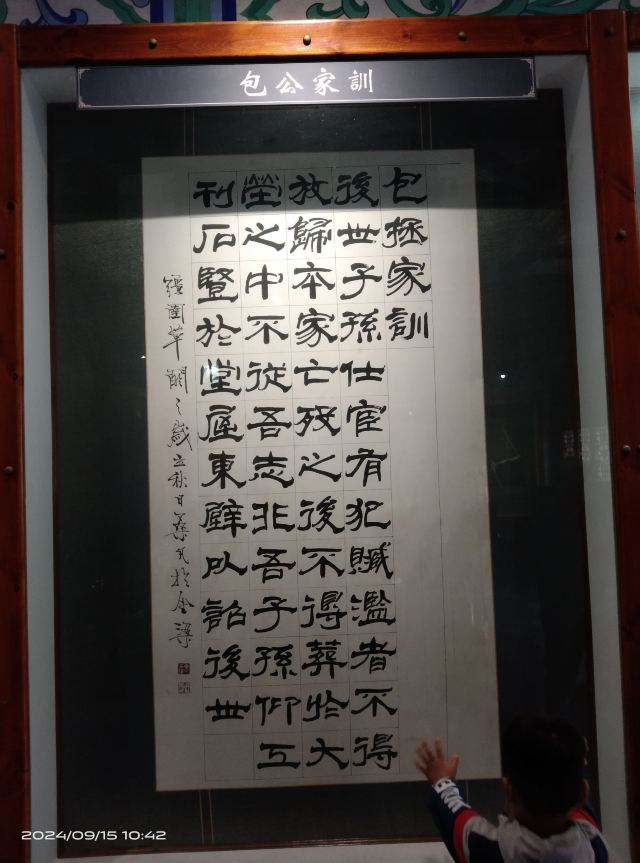 包公家訓
包拯家訓
後世子孫仕宦有犯贓濫者不得
放歸本家亡殁之後不得葬於大
塋之中不從吾志非吾子孫仰工
刊石豎於堂屋東壁以詔後世
歲立秋日於金梁
2024/09/15 10:42